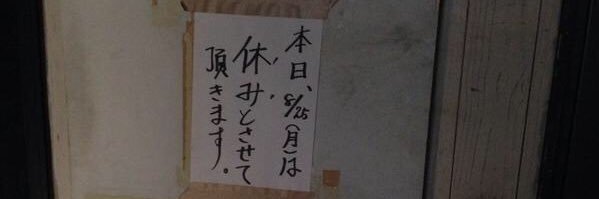 本日、8/25(月)は
休みとさせて
頂きます。